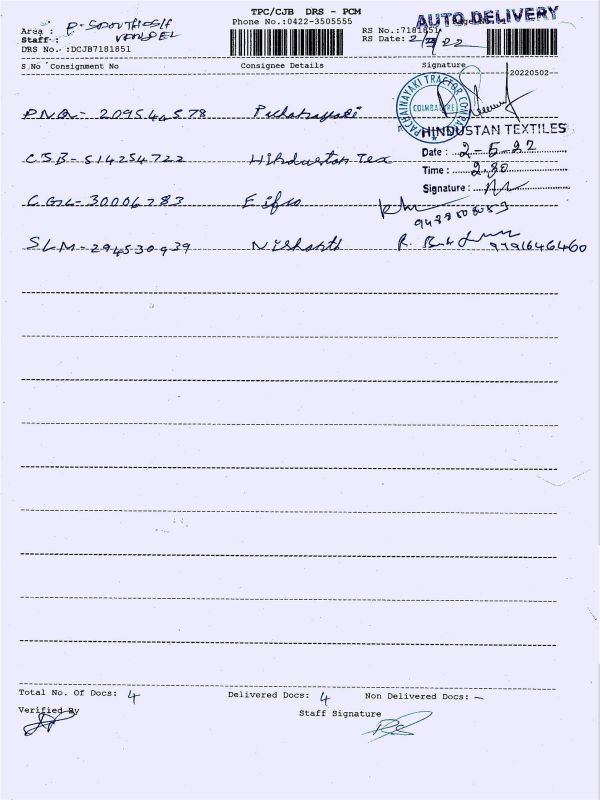 TPC/CJB DRS - PCM
AUTO DELIVERY
Phone No.:0422-3505555
Area :
Staff :
VENDEL
RS No.:7181851
RS Date: 2/5/22
DRS No. :DCJB7181851
S.No Consignment No Consignee Details Signature
20220502
PACHAINAYAKI TRACTOR COMPANY
COIMBATORE
PNQ- 209544578
HINDUSTAN TEXTILES
Date : 2-5-22
CJB- 514254722 Hindustan Tex
Time : 2.30
Signature :
CGL-30006783
SLM-294530939 Nishanth
R.
9791646460
Total No. Of Docs: 4 Delivered Docs: 4 Non Delivered Docs: —
Verified By Staff Signature